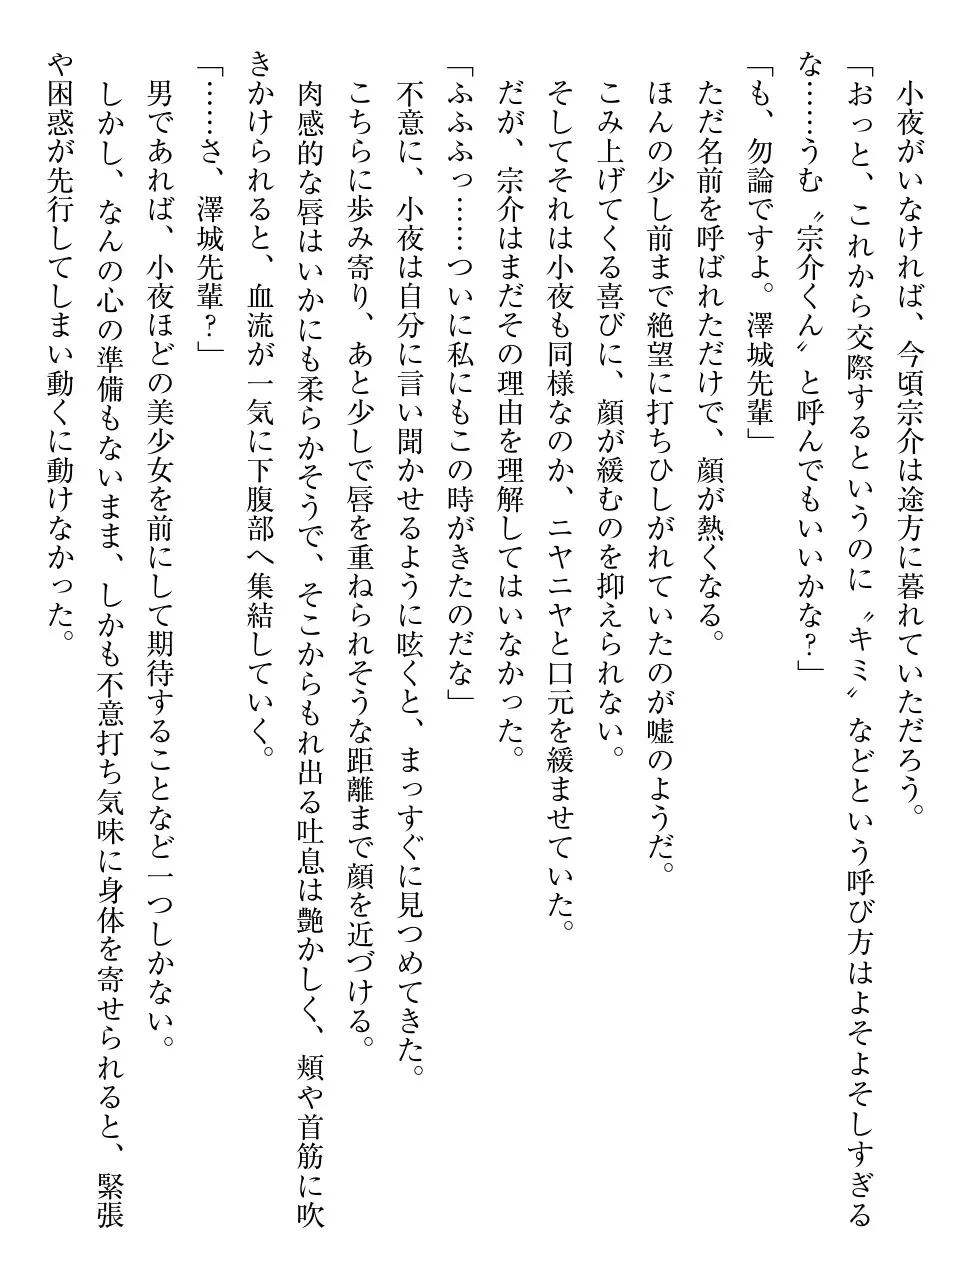 小夜がいなければ、今頃宗介は途方に暮れていただろう。
「おっと、これから交際するというのに〝キミ〟などという呼び方はよそよそしすぎる
な……うむ〝宗介くん〟と呼んでもいいかな？」
「も、勿論ですよ。澤城先輩」
ただ名前を呼ばれただけで、顔が熱くなる。
ほんの少し前まで絶望に打ちひしがれていたのが嘘のようだ。
こみ上げてくる喜びに、顔が緩むのを抑えられない。
そしてそれは小夜も同様なのか、ニヤニヤと口元を緩ませていた。
だが、宗介はまだその理由を理解してはいなかった。
「ふふふっ……ついに私にもこの時がきたのだな」
不意に、小夜は自分に言い聞かせるように呟くと、まっすぐに見つめてきた。
こちらに歩み寄り、あと少しで唇を重ねられそうな距離まで顔を近づける。
肉感的な唇はいかにも柔らかそうで、そこからもれ出る吐息は艶かしく、頬や首筋に吹
きかけられると、血流が一気に下腹部へ集結していく。
「……さ、澤城先輩？」
男であれば、小夜ほどの美少女を前にして期待することなど一つしかない。
しかし、なんの心の準備もないまま、しかも不意打ち気味に身体を寄せられると、緊張
や困惑が先行してしまい動くに動けなかった。